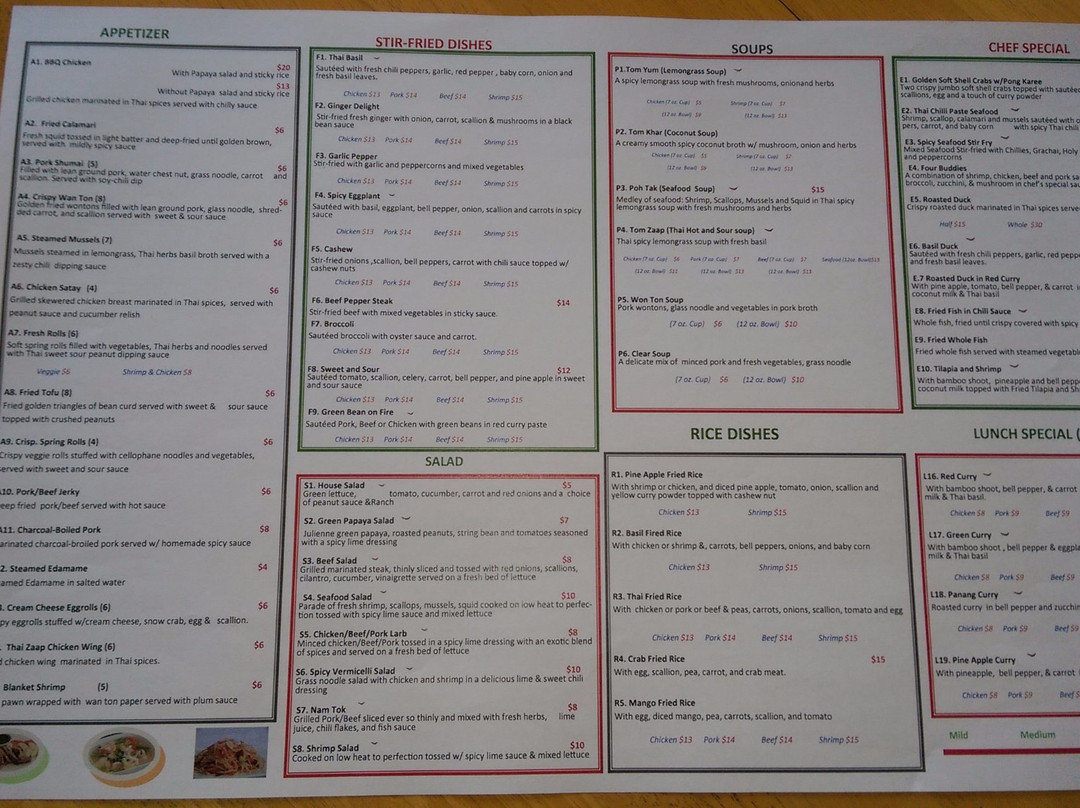 APPETIZER
A1. BBQ Chicken
$20
With Papaya salad and sticky rice
$13
Without Papaya salad and sticky rice
Grilled chicken marinated in Thai spices served with chilly sauce
A2. Fried Calamari
$6
Fresh squid tossed in light batter and deep-fried until golden brown,
served with mildly spicy sauce
A3. Pork Shumai (5)
$6
Filled with lean ground pork, water chest nut, grass noodle, carrot and
scallion. Served with soy-chili dip
A4. Crispy Wan Ton (8)
$6
Golden fried wontons filled with lean ground pork, glass noodle, shred-
ded carrot, and scallion served with sweet & sour sauce
A5. Steamed Mussels (7)
$6
Mussels steamed in lemongrass, Thai herbs basil broth served with a
zesty chili dipping sauce
A6. Chicken Satay (4)
$6
Grilled skewered chicken breast marinated in Thai spices, served with
peanut sauce and cucumber relish
A7. Fresh Rolls (6)
Soft spring rolls filled with vegetables, Thai herbs and noodles served
with Thai sweet sour peanut dipping sauce
Veggie $6 Shrimp & Chicken $8
A8. Fried Tofu (8)
$6
Fried golden triangles of bean curd served with sweet & sour sauce
topped with crushed peanuts
A9. Crisp. Spring Rolls (4)
$6
Crispy veggie rolls stuffed with cellophane noodles and vegetables,
served with sweet and sour sauce
A10. Pork/Beef Jerky
$6
eep fried pork/beef served with hot sauce
A11. Charcoal-Boiled Pork
$8
arinated charcoal-broiled pork served w/ homemade spicy sauce
2. Steamed Edamame
$4
amed Edamame in salted water
. Cream Cheese Eggrolls (6)
$6
py eggrolls stuffed w/cream cheese, snow crab, egg & scallion.
. Thai Zaap Chicken Wing (6)
$6
d chicken wing marinated in Thai spices.
Blanket Shrimp (5)
$6
pawn wrapped with wan ton paper served with plum sauce
STIR-FRIED DISHES
F1. Thai Basil
Sautéed with fresh chili peppers, garlic, red pepper , baby corn, onion and
fresh basil leaves.
Chicken $13 Pork $14 Beef $14 Shrimp $15
F2. Ginger Delight
Stir-fried fresh ginger with onion, carrot, scallion & mushrooms in a black
bean sauce
Chicken $13 Pork $14 Beef $14 Shrimp $15
F3. Garlic Pepper
Stir-fried with garlic and peppercorns and mixed vegetables
Chicken $13 Pork $14 Beef $14 Shrimp $15
F4. Spicy Eggplant
Sautéed with basil, eggplant, bell pepper, onion, scallion and carrots in spicy
sauce
Chicken $13 Pork $14 Beef $14 Shrimp $15
F5. Cashew
Stir-fried onions ,scallion, bell peppers, carrot with chili sauce topped w/
cashew nuts
Chicken $13 Pork $14 Beef $14 Shrimp $15
F6. Beef Pepper Steak
$14
Stir-fried beef with mixed vegetables in sticky sauce.
F7. Broccoli
Sautéed broccoli with oyster sauce and carrot.
Chicken $13 Pork $14 Beef $14 Shrimp $15
F8. Sweet and Sour
$12
Sautéed tomato, scallion, celery, carrot, bell pepper, and pine apple in sweet
and sour sauce
Chicken $13 Pork $14 Beef $14 Shrimp $15
F9. Green Bean on Fire
Sautéed Pork, Beef or Chicken with green beans in red curry paste
Chicken $13 Pork $14 Beef $14 Shrimp $15
SALAD
S1. House Salad
$5
Green lettuce, tomato, cucumber, carrot and red onions and a choice
of peanut sauce &Ranch
S2. Green Papaya Salad
$7
Julienne green papaya, roasted peanuts, string bean and tomatoes seasoned
with a spicy lime dressing
S3. Beef Salad
$8
Grilled marinated steak, thinly sliced and tossed with red onions, scallions,
cilantro, cucumber, vinaigrette served on a fresh bed of lettuce
S4. Seafood Salad
$10
Parade of fresh shrimp, scallops, mussels, squid cooked on low heat to perfec-
tion tossed with spicy lime sauce and mixed lettuce
S5. Chicken/Beef/Pork Larb
$8
Minced chicken/Beef/Pork tossed in a spicy lime dressing with an exotic blend
of spices and served on a fresh bed of lettuce
S6. Spicy Vermicelli Salad
$10
Grass noodle salad with chicken and shrimp in a delicious lime & sweet chili
dressing
S7. Nam Tok
$8
Grilled Pork/Beef sliced ever so thinly and mixed with fresh herbs, lime
juice, chili flakes, and fish sauce
S8. Shrimp Salad
$10
Cooked on low heat to perfection tossed w/ spicy lime sauce & mixed lettuce
SOUPS
P1.Tom Yum (Lemongrass Soup)
A spicy lemongrass soup with fresh mushrooms, onionand herbs
Chicken (7 oz. Cup) $5 Shrimp (7 oz. Cup) $7
(12 oz. Bowl) $9 (12 oz. Bowl) $13
P2. Tom Khar (Coconut Soup)
A creamy smooth spicy coconut broth w/ mushroom, onion and herbs
Chicken (7 oz. Cup) $5 Shrimp (7 oz. Cup) $7
(12 oz. Bowl) $9 (12 oz. Bowl) $13
P3. Poh Tak (Seafood Soup)
$15
Medley of seafood: Shrimp, Scallops, Mussels and Squid in Thai spicy
lemongrass soup with fresh mushrooms and herbs
P4. Tom Zaap (Thai Hot and Sour soup)
Thai spicy lemongrass soup with fresh basil
Chicken (7 oz. Cup) $6 Pork (7 oz. Cup) $7 Beef (7 oz. Cup) $7 Seafood (12oz. Bowl)$13
(12 oz. Bowl) $11 (12 oz. Bowl) $13 (12 oz. Bowl) $13
P5. Won Ton Soup
Pork wontons, glass noodle and vegetables in pork broth
(7 oz. Cup) $6 (12 oz. Bowl) $10
P6. Clear Soup
A delicate mix of minced pork and fresh vegetables, grass noodle
(7 oz. Cup) $6 (12 oz. Bowl) $10
RICE DISHES
R1. Pine Apple Fried Rice
With shrimp or chicken, and diced pine apple, tomato, onion, scallion and
yellow curry powder topped with cashew nut
Chicken $13 Shrimp $15
R2. Basil Fired Rice
With chicken or shrimp &, carrots, bell peppers, onions, and baby corn
Chicken $13 Shrimp $15
R3. Thai Fried Rice
With chicken or pork or beef & peas, carrots, onions, scallion, tomato and egg
Chicken $13 Pork $14 Beef $14 Shrimp $15
R4. Crab Fried Rice
$15
With egg, scallion, pea, carrot, and crab meat.
R5. Mango Fried Rice
With egg, diced mango, pea, carrots, scallion, and tomato
Chicken $13 Pork $14 Beef $14 Shrimp $15
CHEF SPECIAL
E1. Golden Soft Shell Crabs w/Pong Karee
Two crispy jumbo soft shell crabs topped with sautéed
scallions, egg and a touch of curry powder
E2. Thai Chilli Paste Seafood
Shrimp, scallop, calamari and mussels sautéed with o
pers, carrot, and baby corn with spicy Thai chili
E3. Spicy Seafood Stir Fry
Mixed Seafood Stir-fried with Chillies, Grachai, Holy
and peppercorns
E4. Four Buddies
A combination of shrimp, chicken, beef and pork sa
broccoli, zucchini, & mushroom in chef's special sau
E5. Roasted Duck
Crispy roasted duck marinated in Thai spices serve
Half $15 Whole $30
E6. Basil Duck
Sautéed with fresh chili peppers, garlic, red peppe
and fresh basil leaves.
E.7 Roasted Duck in Red Curry
With pine apple, tomato, bell pepper, & carrot i
coconut milk & Thai basil
E8. Fried Fish in Chili Sauce
Whole fish, fried until crispy covered with spicy
E9. Fried Whole Fish
Fried whole fish served with steamed vegetabl
E10. Tilapia and Shrimp
With bamboo shoot, pineapple and bell pepp
coconut milk topped with Fried Tilapia and Sh
LUNCH SPECIAL (
L16. Red Curry
With bamboo shoot, bell pepper, & carrot
milk & Thai basil.
Chicken $8 Pork $9 Beef $9
L17. Green Curry
With bamboo shoot , bell pepper & eggpla
milk & Thai basil
Chicken $8 Pork $9 Beef $9
L18. Panang Curry
Roasted curry in bell pepper and zucchin
Chicken $8 Pork $9 Beef $9
L19. Pine Apple Curry
With pineapple, bell pepper, & carrot
Chicken $8 Pork $9 Beef $
Mild Medium